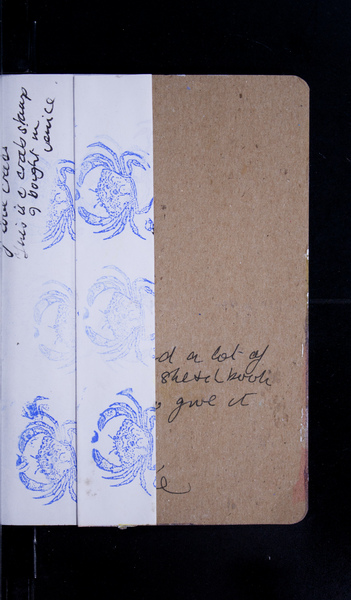 This is a crab stamp
I bought in
venice
d a lot of
sketchbook
give it